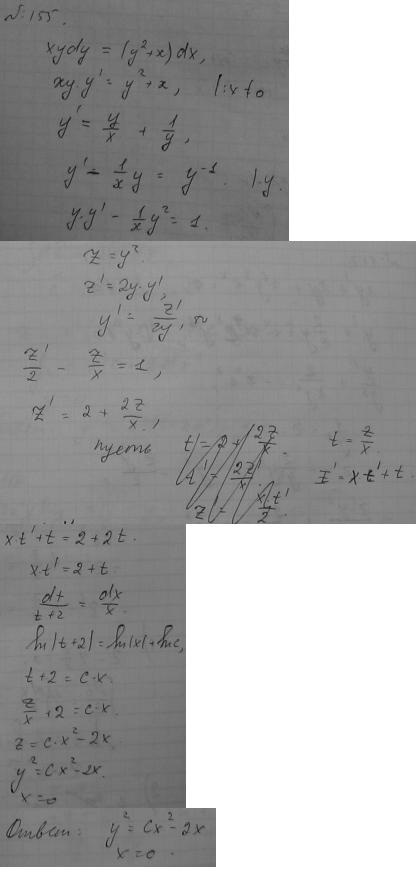 №155.
xydy = (y²+x)dx,
xy·y' = y²+x, |:x≠0
y' = y/x + 1/y,
y' - 1/x y = y⁻¹. |·y.
y·y' - 1/x y² = 1.
z = y².
z' = 2y·y',
y' = z'/2y, то
z'/2 - z/x = 1,
z' = 2 + 2z/x,
пусть t = z/x.
z' = x·t' + t.
x·t'+t = 2+2t.
x·t' = 2+t
dt/t+2 = dx/x.
ln|t+2| = ln|x| + ln c,
t+2 = c·x.
z/x + 2 = c·x.
z = c·x² - 2x.
y² = cx² - 2x.
x = 0
Ответ: y² = cx² - 2x
x = 0.